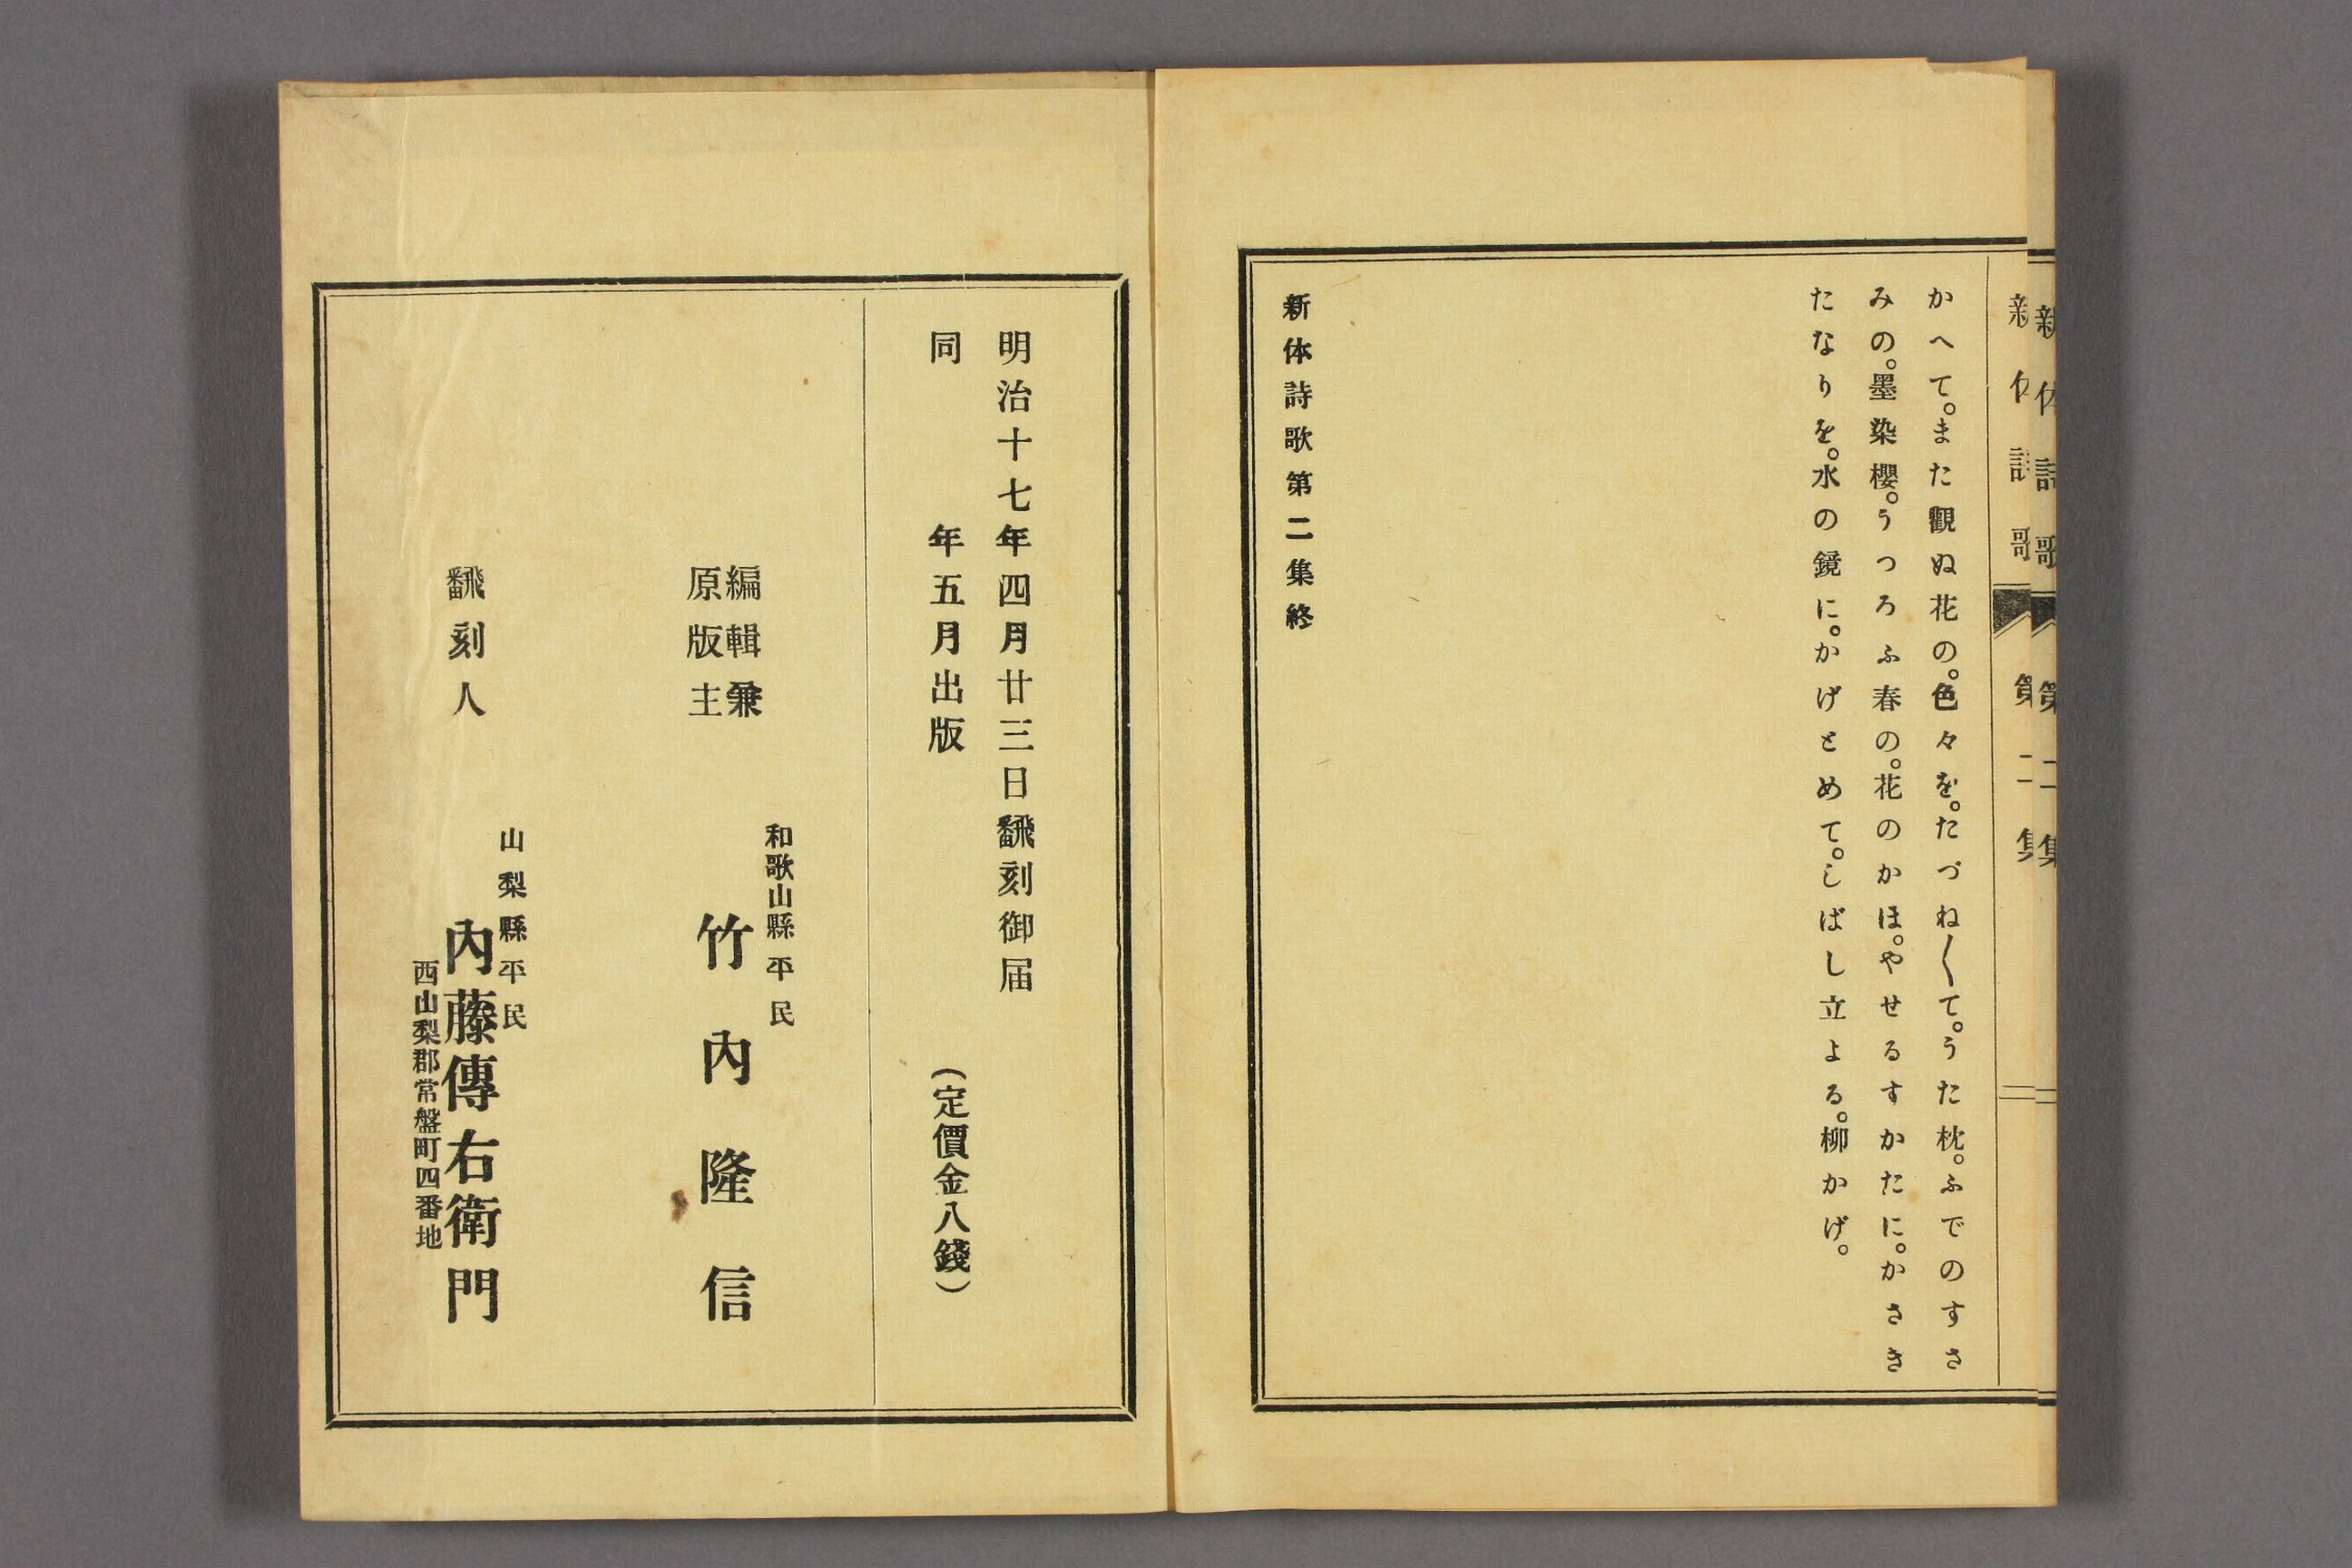 新体詩歌 第二集
新体詩歌 第二集
かへて。また觀ぬ花の。色々を。たづね〳〵て。うた枕。ふでのすさ
みの。墨染櫻。うつろふ春の。花のかほ。やせるすかたに。かささき
たなりを。水の鏡に。かげとめて。しばし立よる。柳かげ。
新体詩歌第二集終
明治十七年四月廿三日飜刻御届
同 年五月出版 (定價金八錢)
和歌山縣平民
編輯兼
原版主
竹內隆信
山梨縣平民
飜刻人 內藤傳右衛門
西山梨郡常盤町四番地